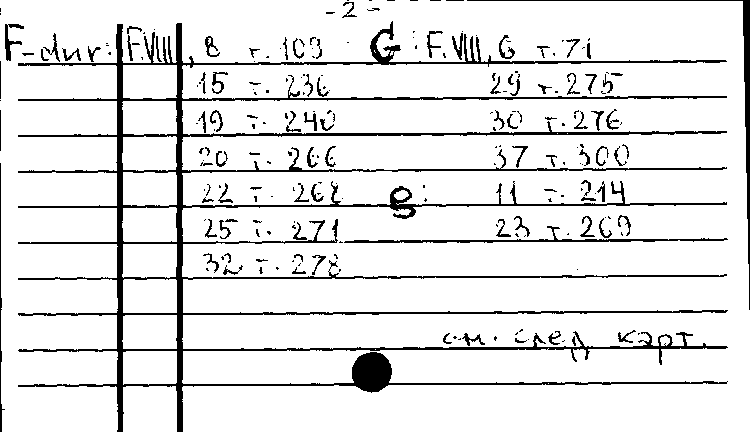 - 2 -
F-dur: F.VIII, 8 т. 109 G: F.VIII, 6 т. 71
15 т. 236 29 т. 275
19 т. 240 30 т. 276
20 т. 266 37 т. 300
22 т. 268 g: 11 т. 214
25 т. 271 23 т. 269
32 т. 278
см. след карт.